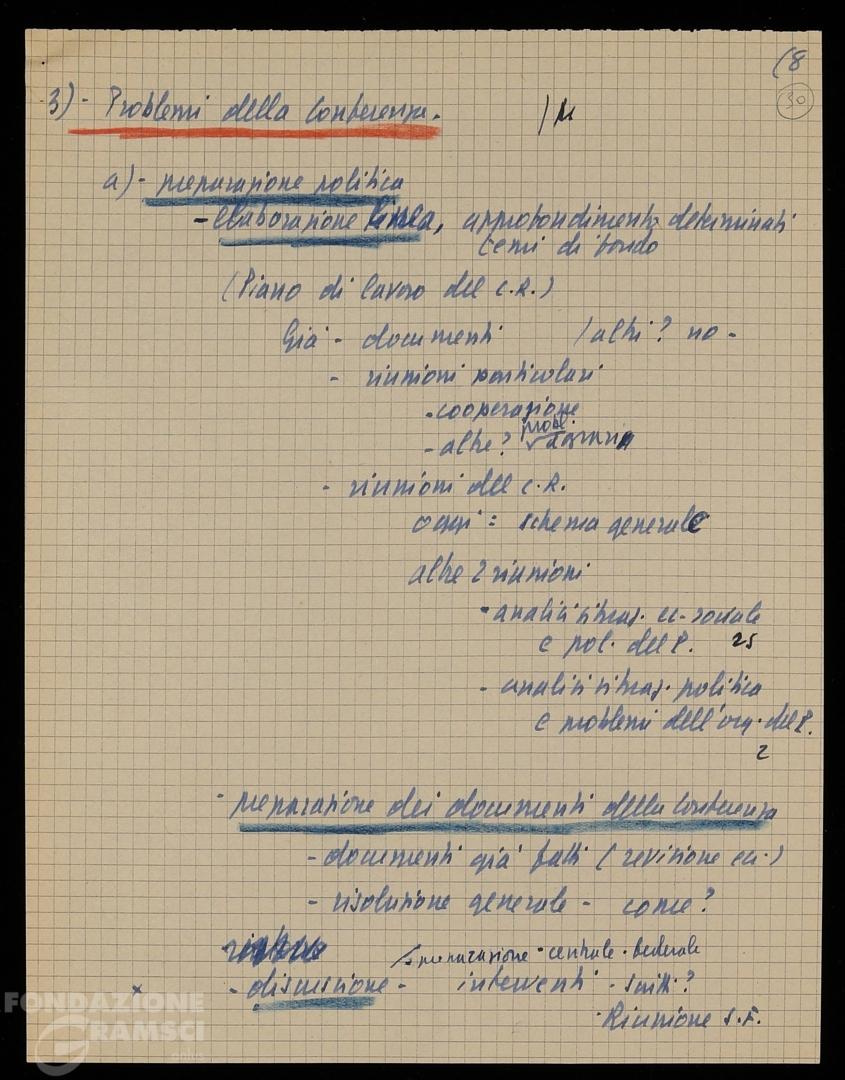 (8
30
3)- Problemi della Conferenza.
a)- preparazione politica
- elaborazione linea, approfondimento determinati
temi di fondo
(Piano di lavoro del C.R.)
Già - documenti / altri? no -
- riunioni particolari
- cooperazione
- altre? probl.
- riunioni del C.R.
oggi: schema generale
altre 2 riunioni
- analisi situaz. ec-sociale
e pol. del P. 25
- analisi situaz. politica
e problemi dell'org. del P.
2
- preparazione dei documenti della Conferenza
- documenti già fatti (revisione ecc.)
- risoluzione generale - come?
preparazione - centrale - federale
x - discussione - interventi - scritti?
- Riunione S.F.
FONDAZIONE
GRAMSCI
onlus